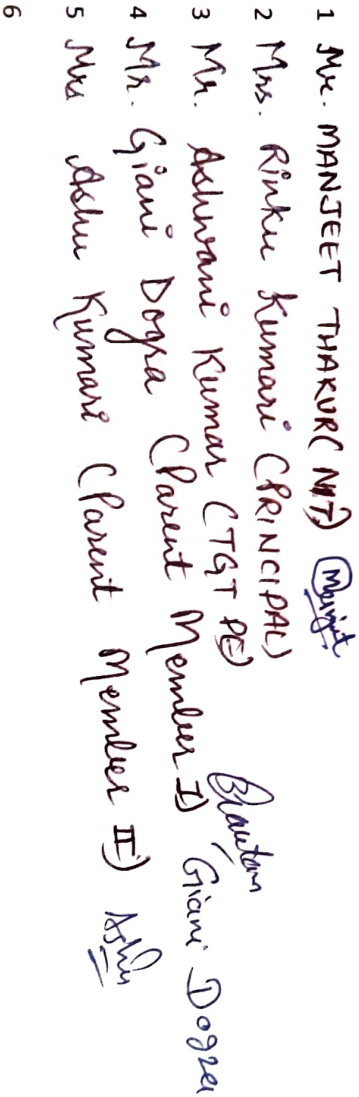 1 Mr. MANJEET THAKUR (NIT) Manjeet
2 Mrs. Rinku Kumari (PRINCIPAL)
3 Mr. Ashwani Kumar (TGT PE)
4 Mr. Giani Dogra (Parent Member I) Giani Dogra
5 Mrs Ashu Kumari (Parent Member II) Ashu
6